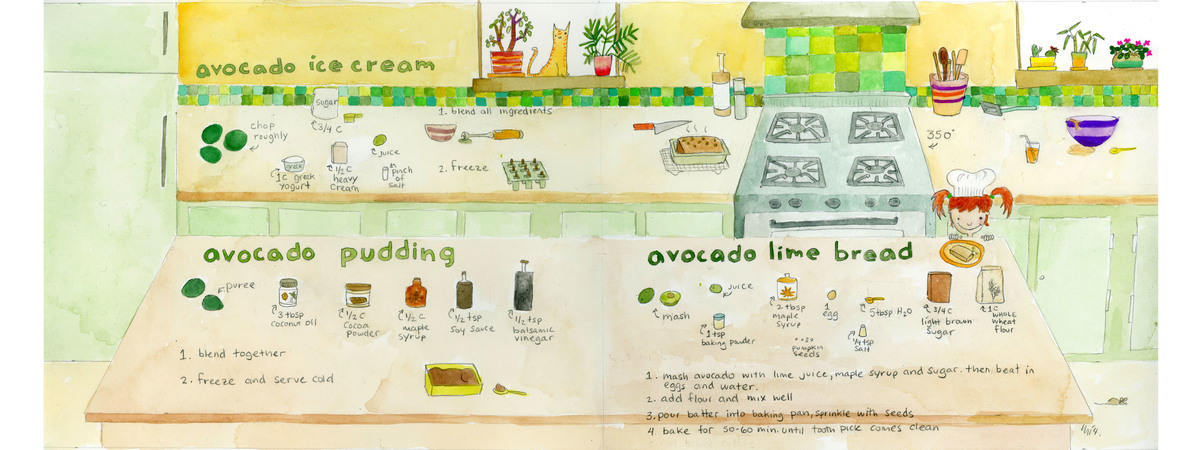 avocado ice cream
sugar
3/4 C
chop
roughly
greek
1c greek
yogurt
1/2 C
heavy
cream
juice
pinch
of
salt
1. blend all ingredients
2. freeze
350°
avocado pudding
puree
3 tbsp
coconut oil
1/2 C
cocoa
powder
1/2 C
maple
syrup
1/2 tsp
soy sauce
1/2 tsp
balsamic
vinegar
1. blend together
2. freeze and serve cold
avocado lime bread
mash
juice
1 tsp
baking powder
2 tbsp
maple
syrup
pumpkin
seeds
1
egg
5 tbsp H2O
1/4 tsp
salt
3/4 C
light brown
sugar
1 C
WHOLE
wheat
flour
1. mash avocado with lime juice, maple syrup and sugar. then beat in
eggs and water.
2. add flour and mix well
3. pour batter into baking pan, sprinkle with seeds
4. bake for 50-60 min. until tooth pick comes clean